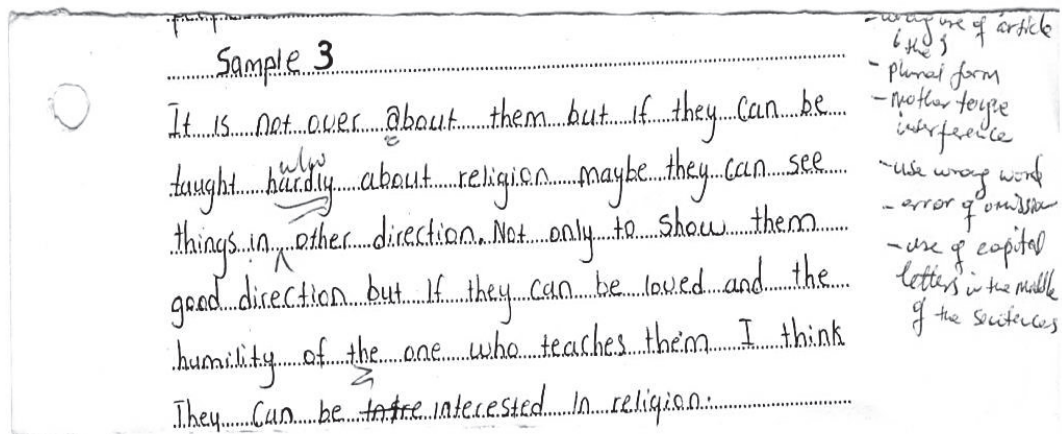 Sample 3
It is not over about them but if they can be
who
taught hardly about religion maybe they can see
things in other direction. Not only to show them
good direction but If they can be loved and the
humility of the one who teaches them I think
They Can be interested In religion.
- wrong use of article
{ the }
- plural form
- Mother tongue
interference
- use wrong word
- error of omission
- use of capital
letters in the middle
of the sentences